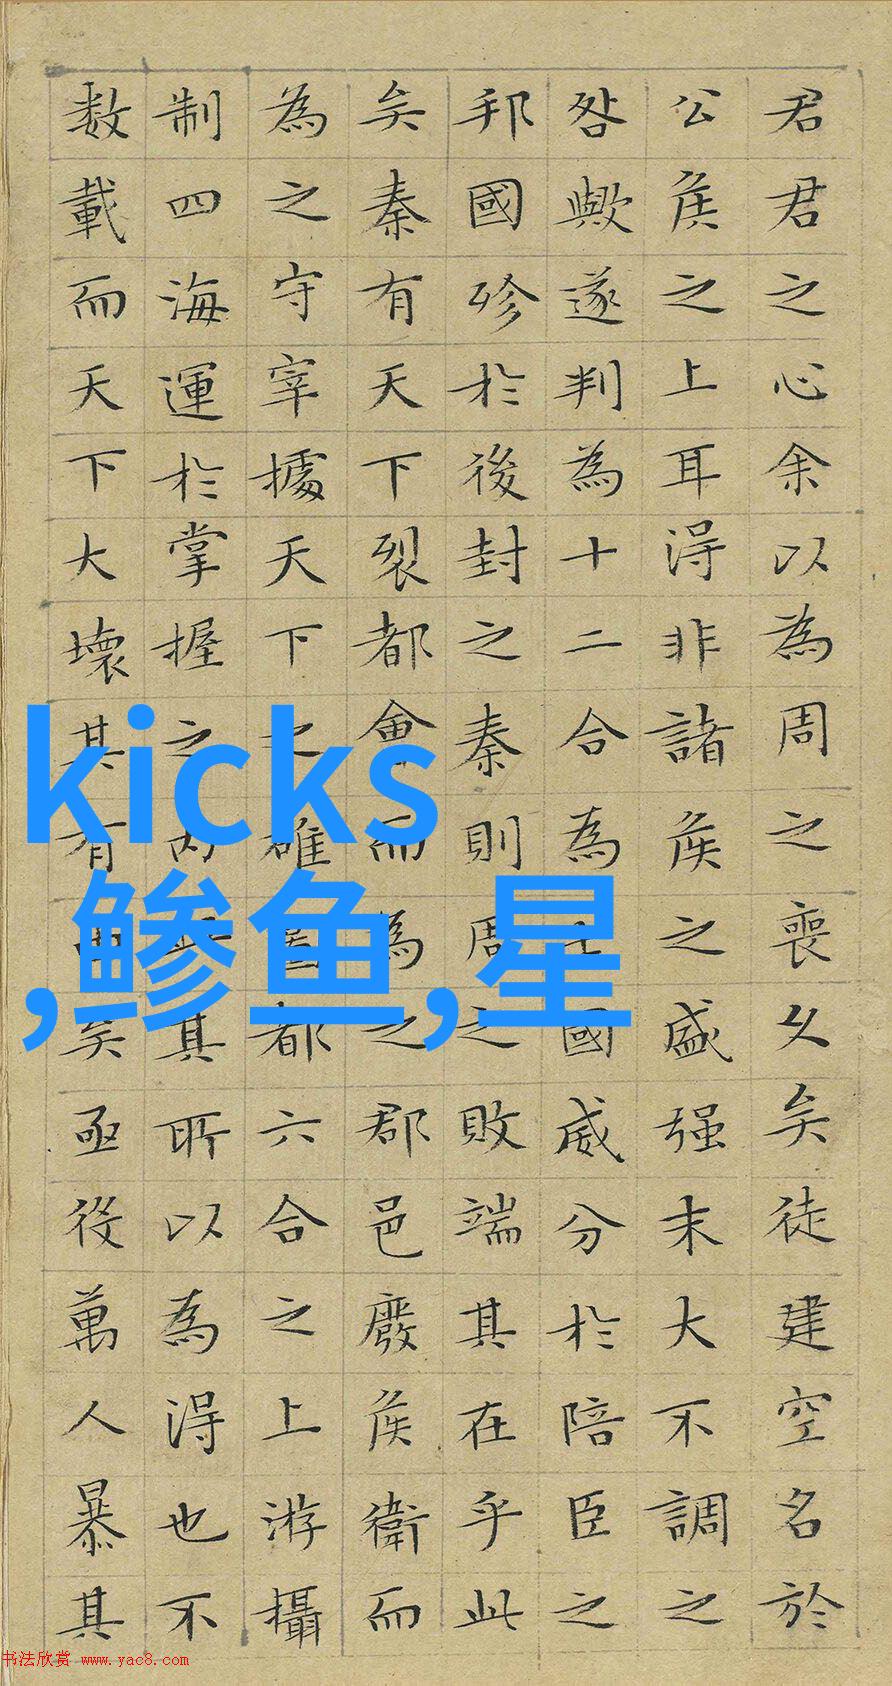 君君之心余以為周之喪久矣徒建空名於
公侯之上耳得非諸侯之盛强末大不調之
咎歟遂判為十二合為國威分於陪臣之
邦國殄於後封之秦則周之敗端其在乎此
矣秦有天下裂都會而為之郡邑廢侯衛而
為之守宰據天下之雄都六合之上游攝
制四海運於掌握之内其所以為得也不
数載而天下大壞其有矣亟役萬人暴其
kicks
,鲹鱼,星
书法欣赏 www.yac8.com